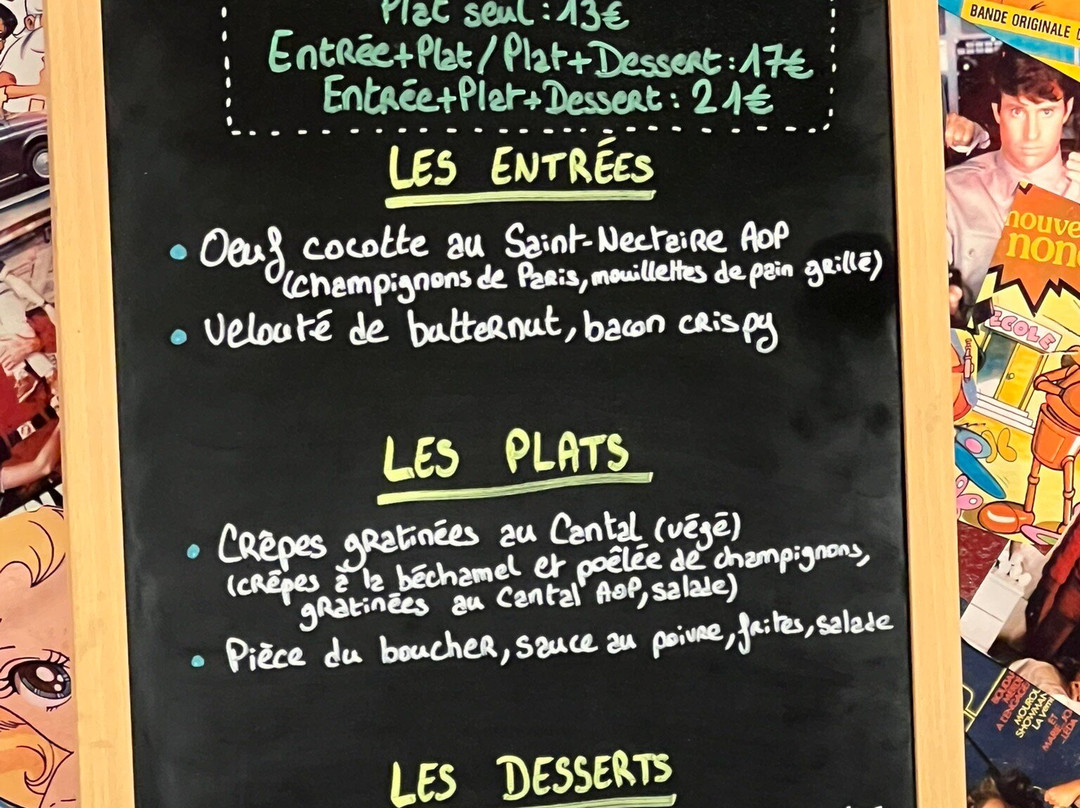 Plat seul : 13€
Entrée+Plat / Plat+Dessert : 17€
Entrée+Plat+Dessert : 21€
LES ENTRÉES
• Oeuf cocotte au Saint-Nectaire AOP
(champignons de Paris, mouillettes de pain grillé)
• Velouté de butternut, bacon crispy
LES PLATS
• Crêpes gratinées au Cantal (végé)
(crêpes à la béchamel et poêlée de champignons,
gratinées au Cantal AOP, salade)
• Pièce du boucher, sauce au poivre, frites, salade
LES DESSERTS
BANDE ORIGINALE
ECOLE